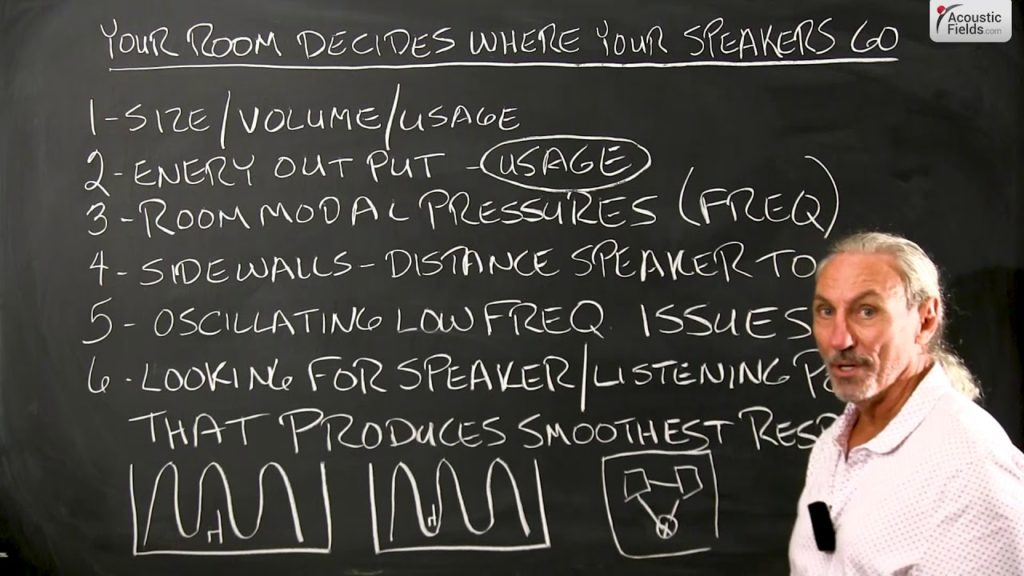 Acoustic
Fields.com
YOUR ROOM DECIDES WHERE YOUR SPEAKERS GO
1-SIZE/VOLUME/USAGE
2-ENERY OUT PUT - USAGE
3-ROOM MODAL PRESSURES (FREQ)
4-SIDEWALLS-DISTANCE SPEAKER TO
5-OSCILLATING LOW FREQ. ISSUES
6-LOOKING FOR SPEAKER/LISTENING
THAT PRODUCES SMOOTHEST